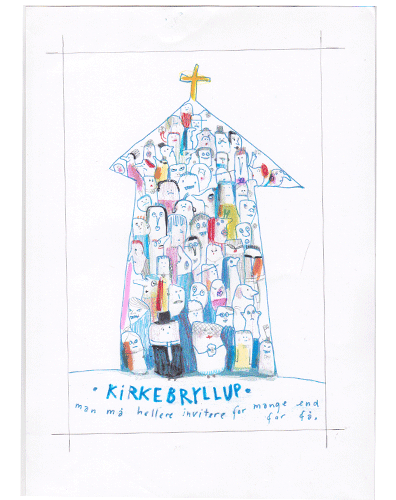 • KiRKEBRYLLUP •
man må hellere invitere for mange end
for få.